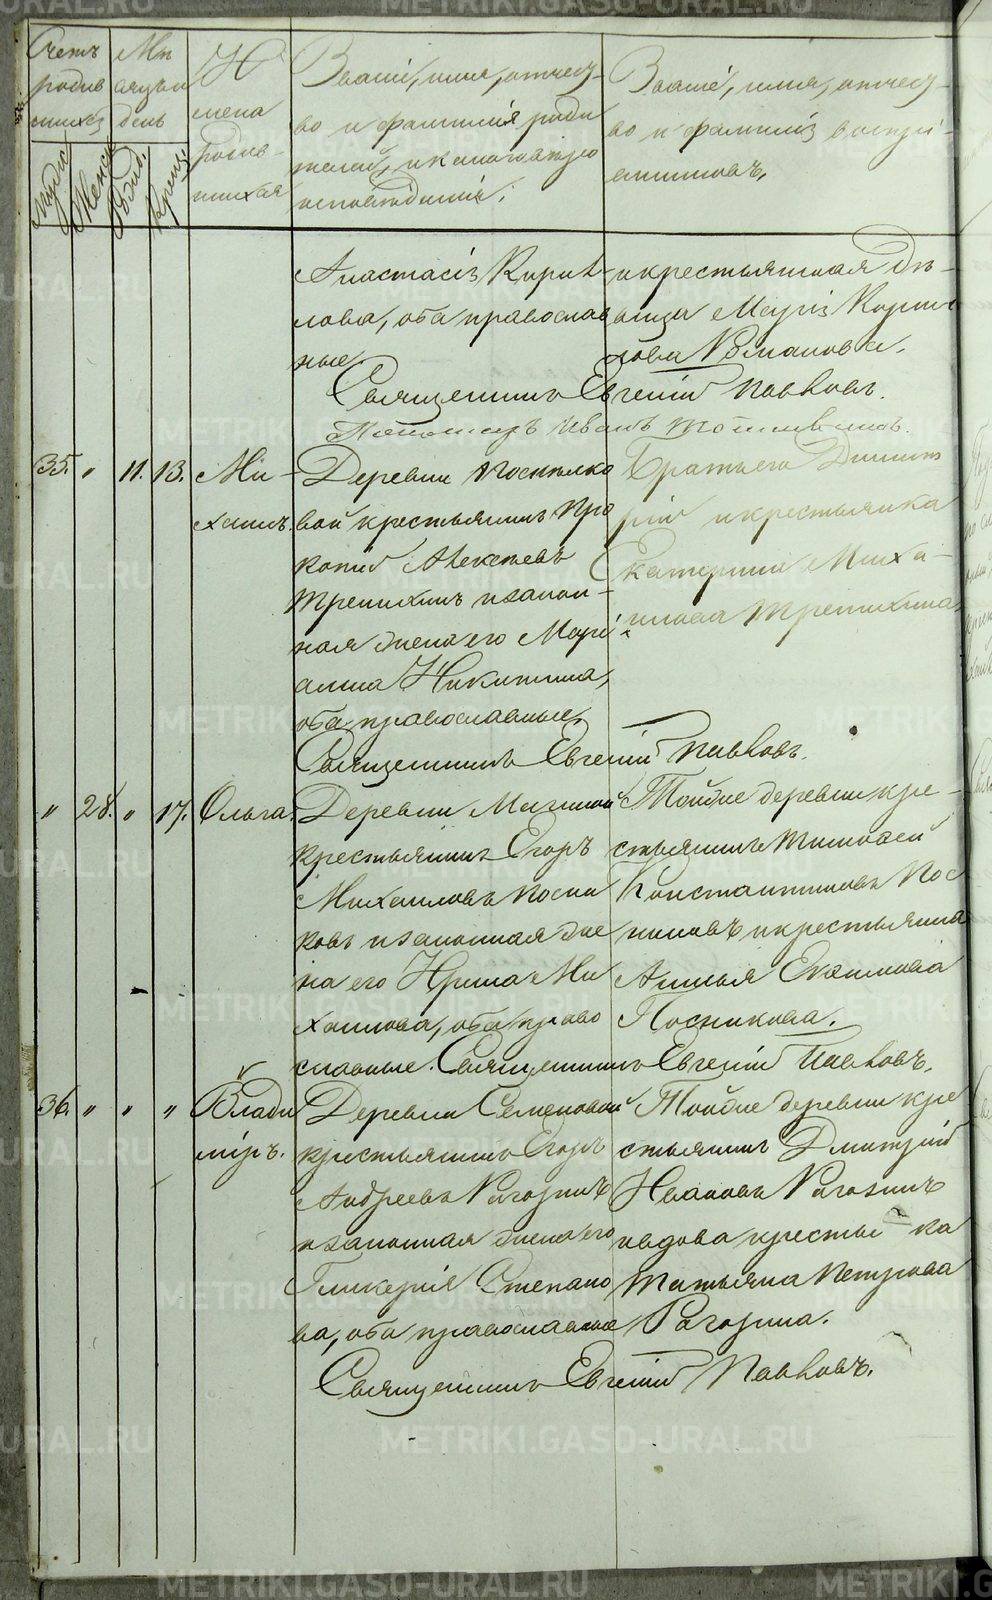 Счетъ родившихся
Муже Женск
Мѣсяцъ и день
Рожд. Крещ.
Имена родившихся
Званіе, имя, отчество и фамилія родителей, и какого вѣро
исповѣданія.
Званіе, имя, отчество и фамилія воспріемниковъ.
Анастасія Кирил-
лова, оба православ
ные
и крестьянская дѣ-
вица Марія Кирил
лова Романова.
Священникъ Евгеній Павловъ.
Пономарь Иванъ
35. " 11. 13. Ми-
хаилъ.
Деревни
вой крестьянинъ Про
копій Алексѣевъ
Трепихинъ и закон-
ная жена его Марі
анна Никитина,
оба православные.
Братъ его Димит
рій и крестьянка
Екатерина Миха-
илова Трепихина
Священникъ Евгеній Павловъ.
" 28. " 17. Ольга.
Деревни
крестьянинъ Егоръ
Михаиловъ Посни
ковъ и законная же
на его Ирина Ми
хаилова, оба право
славные.
Тойже деревни кре-
стьянинъ Тимофей
Константиновъ Пос
никовъ и крестьянка
Анисья Екимова
Посникова.
Священникъ Евгеній Павловъ.
36. " " " Влади
міръ.
Деревни Семеновой
крестьянинъ Егоръ
Андреевъ Рагозинъ
и законная жена его
Гликерія Степано
ва, оба православные
Тойже деревни кре
стьянинъ Дмитрій
Ивановъ Рагозинъ
и вдова крестьянка
Татьяна Петрова
Рагозина.
Священникъ Евгеній Павловъ.
METRIKI.GASO-URAL.RU